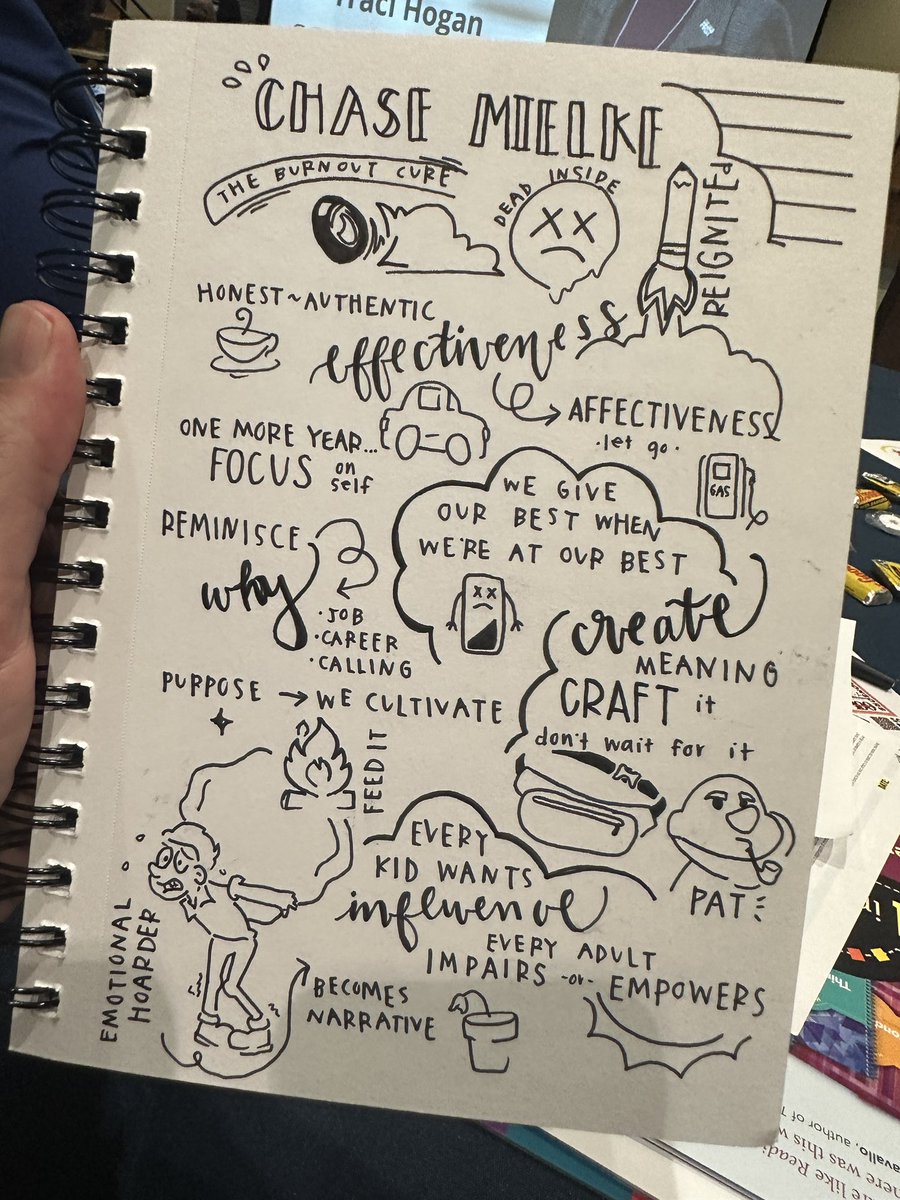 Traci Hogan
CHASE MIELKE
THE BURNOUT CURE
DEAD INSIDE
REIGNITEd
HONEST~AUTHENTIC
effectiveness
AFFECTIVENESS
·let go·
ONE MORE YEAR...
FOCUS on self
GAS
WE GIVE
OUR BEST WHEN
WE'RE AT OUR BEST
REMINISCE
why
·JOB
·CAREER
·CALLING
create
MEANING
CRAFT it
don't wait for it
PURPOSE → WE CULTIVATE
FEED IT
EVERY
KID WANTS
influence
PAT
EVERY ADULT
IMPAIRS -or- EMPOWERS
EMOTIONAL
HOARDER
BECOMES
NARRATIVE